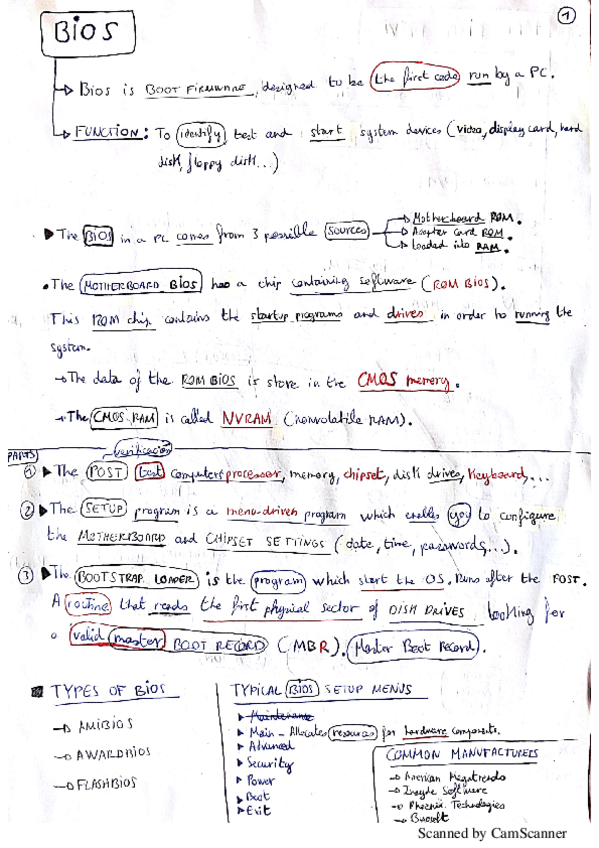 1
BIOS
Bios is BOOT FIRMWARE, designed to be the first code run by a PC.
FUNCTION: To identify, test and start system devices (video, display card, hard
disk, floppy disk...)
The BIOS in a PC comes from 3 possible sources
Motherboard ROM.
Adapter card ROM.
Loaded into RAM.
The MOTHERBOARD BIOS has a chip containing software (ROM BIOS).
This ROM chip contains the startup programs and drives in order to running the
system.
The data of the ROM BIOS is store in the CMOS memory.
The CMOS RAM is called NVRAM (nonvolatile RAM).
PARTS
verificacion
1 The POST test computers processor, memory, chipset, disk drives, keyboard,...
2 The SETUP program is a menu-driven program which enables you to configure
the MOTHERBOARD and CHIPSET SETTINGS (date, time, passwords,...).
3 The BOOTSTRAP LOADER is the program which start the OS. Runs after the POST.
A routine that reads the first physical sector of DISK DRIVES looking for
a valid master BOOT RECORD (MBR). Master Boot Record.
TYPES OF BIOS
AMIBIOS
AWARDBIOS
FLASHBIOS
TYPICAL BIOS SETUP MENUS
Maintenance
Main - Allocates resources for hardware components.
Advanced
Security
Power
Boot
Exit
COMMON MANUFACTURERS
American Megatrends
Insyde Software
Phoenix Technologies
Scanned by CamScanner